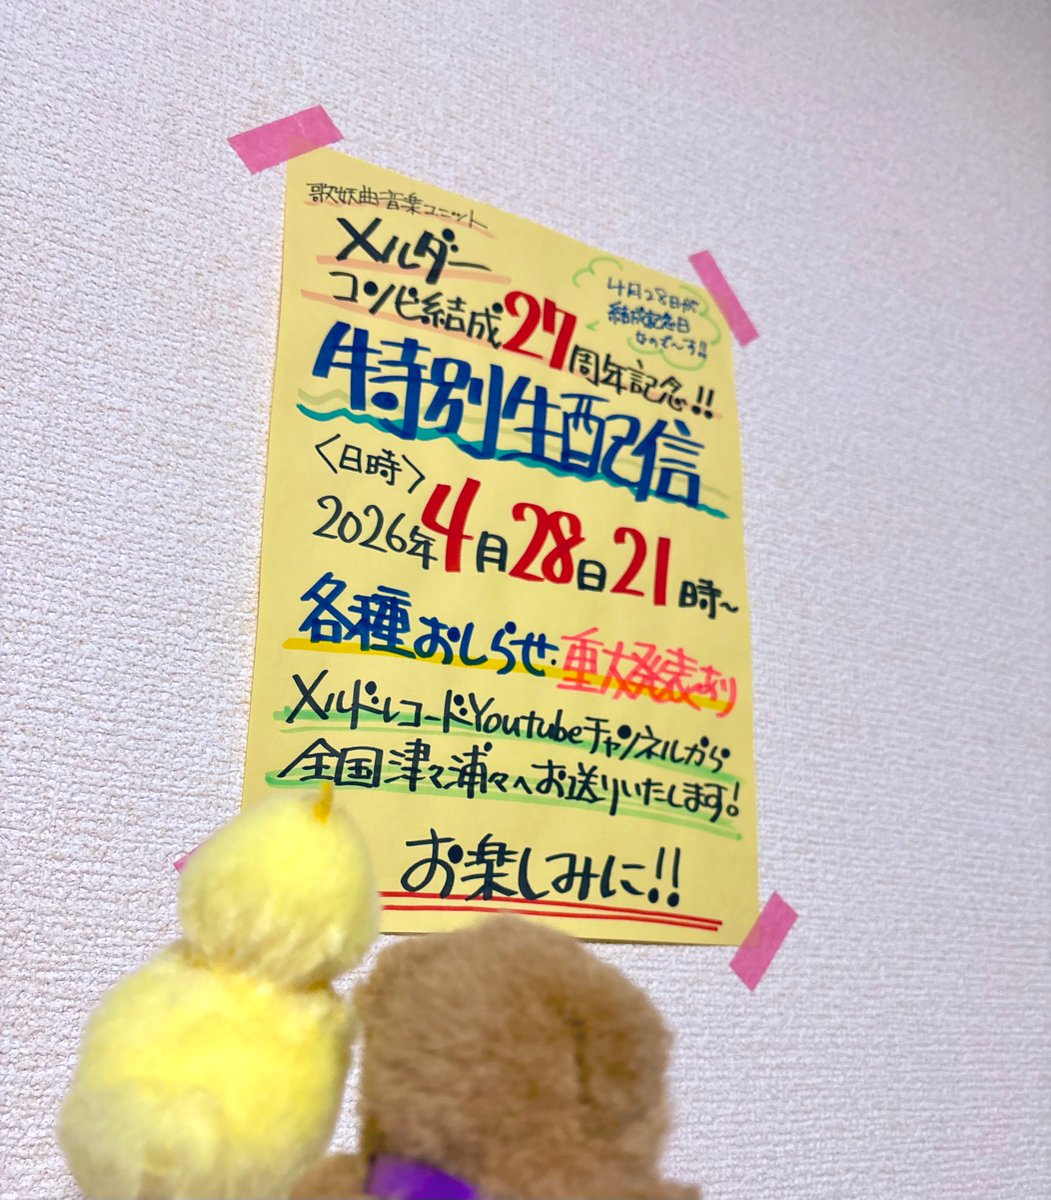 歌妖曲音楽ユニット
メルダー
コンビ結成27周年記念!!
4月28日が
結成記念日
なので〜す!!
特別生配信
〈日時〉
2026年4月28日21時~
各種おしらせ・重大発表あり
メルドレコードYoutubeチャンネルから
全国津々浦々へお送りいたします!
お楽しみに!!